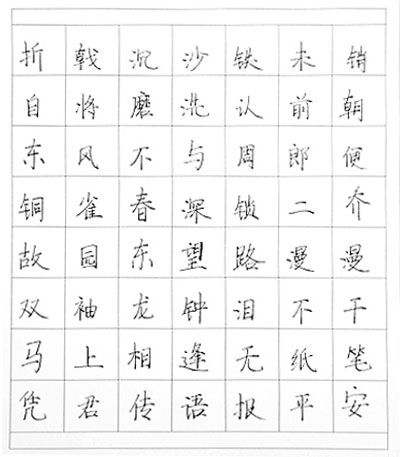 折戟沉沙铁未销
自将磨洗认前朝
东风不与周郎便
铜雀春深锁二乔
故园东望路漫漫
双袖龙钟泪不干
马上相逢无纸笔
凭君传语报平安